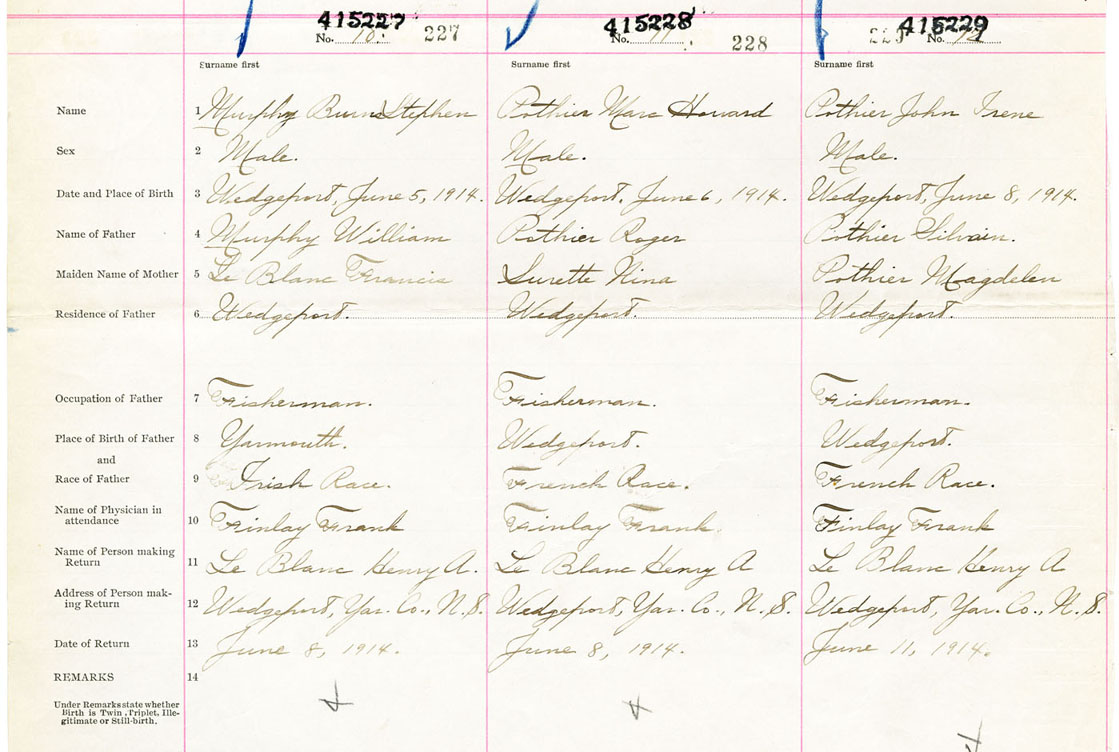 415227 415228 415229
No. 10. 227 No. 11. 228 229 No. 12
Surname first Surname first Surname first
Name 1 Murphy Burns Stephen Pothier Marc Howard Pothier John Irene
Sex 2 Male. Male. Male.
Date and Place of Birth 3 Wedgeport, June 5, 1914. Wedgeport, June 6, 1914. Wedgeport, June 8, 1914.
Name of Father 4 Murphy William Pothier Roger Pothier Silvain.
Maiden Name of Mother 5 Le Blanc Francis Surette Nina Pothier Magdelen
Residence of Father 6 Wedgeport. Wedgeport. Wedgeport.
Occupation of Father 7 Fisherman. Fisherman. Fisherman.
Place of Birth of Father 8 Yarmouth. Wedgeport. Wedgeport.
and
Race of Father 9 Irish Race. French Race. French Race.
Name of Physician in
attendance 10 Finlay Frank Finlay Frank. Finlay Frank
Name of Person making
Return 11 Le Blanc Henry A. Le Blanc Henry A Le Blanc Henry A
Address of Person mak-
ing Return 12 Wedgeport, Yar. Co., N.S. Wedgeport, Yar. Co., N.S. Wedgeport, Yar. Co., N.S.
Date of Return 13 June 8, 1914. June 8, 1914. June 11, 1914.
REMARKS 14
Under Remarks state whether
Birth is Twin, Triplet, Ille-
gitimate or Still-birth.